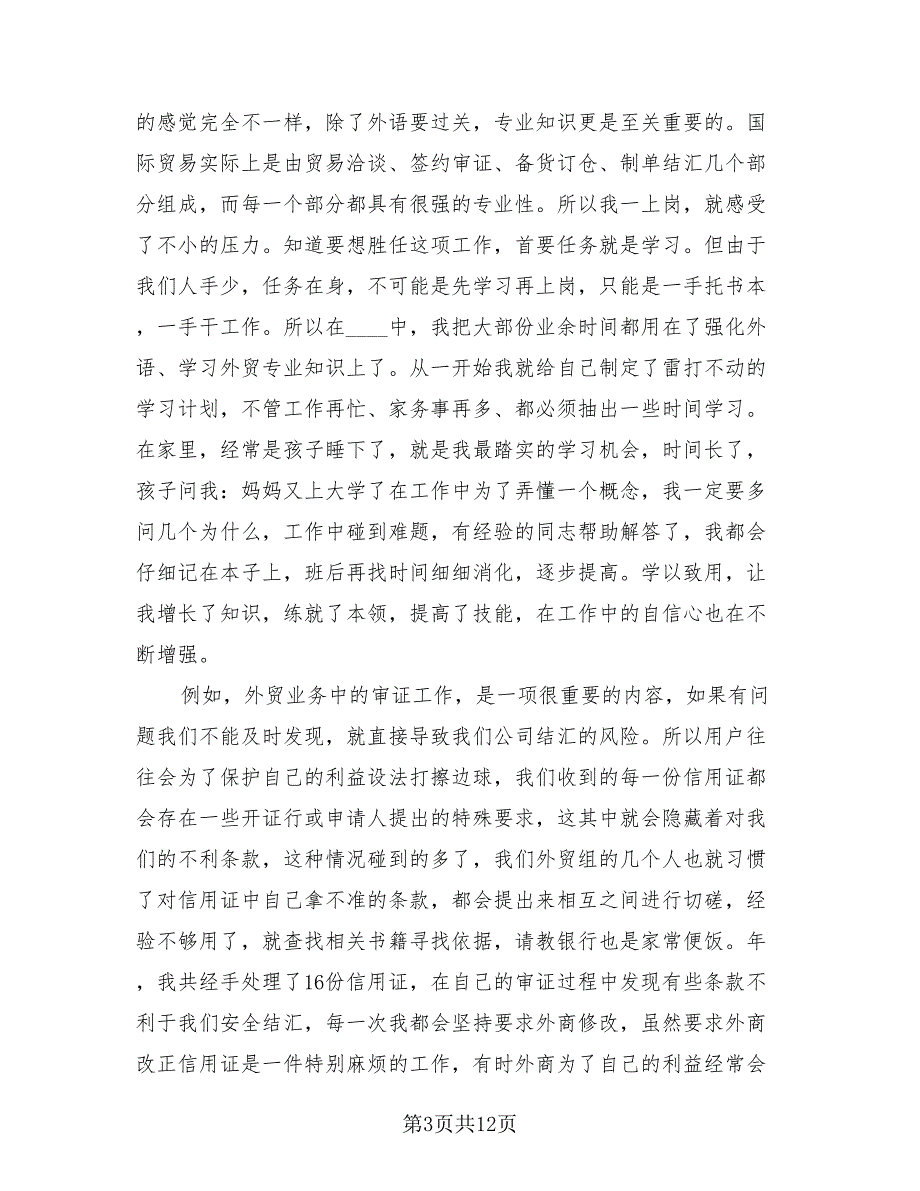 的感觉完全不一样，除了外语要过关，专业知识更是至关重要的。国
际贸易实际上是由贸易洽谈、签约审证、备货订仓、制单结汇几个部
分组成，而每一个部分都具有很强的专业性。所以我一上岗，就感受
了不小的压力。知道要想胜任这项工作，首要任务就是学习。但由于
我们人手少，任务在身，不可能是先学习再上岗，只能是一手托书本
，一手干工作。所以在____中，我把大部份业余时间都用在了强化外
语、学习外贸专业知识上了。从一开始我就给自己制定了雷打不动的
学习计划，不管工作再忙、家务事再多、都必须抽出一些时间学习。
在家里，经常是孩子睡下了，就是我最踏实的学习机会，时间长了，
孩子问我：妈妈又上大学了在工作中为了弄懂一个概念，我一定要多
问几个为什么，工作中碰到难题，有经验的同志帮助解答了，我都会
仔细记在本子上，班后再找时间细细消化，逐步提高。学以致用，让
我增长了知识，练就了本领，提高了技能，在工作中的自信心也在不
断增强。
例如，外贸业务中的审证工作，是一项很重要的内容，如果有问
题我们不能及时发现，就直接导致我们公司结汇的风险。所以用户往
往会为了保护自己的利益设法打擦边球，我们收到的每一份信用证都
会存在一些开证行或申请人提出的特殊要求，这其中就会隐藏着对我
们的不利条款，这种情况碰到的多了，我们外贸组的几个人也就习惯
了对信用证中自己拿不准的条款，都会提出来相互之间进行切磋，经
验不够用了，就查找相关书籍寻找依据，请教银行也是家常便饭。年
，我共经手处理了16份信用证，在自己的审证过程中发现有些条款不
利于我们安全结汇，每一次我都会坚持要求外商修改，虽然要求外商
改正信用证是一件特别麻烦的工作，有时外商为了自己的利益经常会
第3页共12页